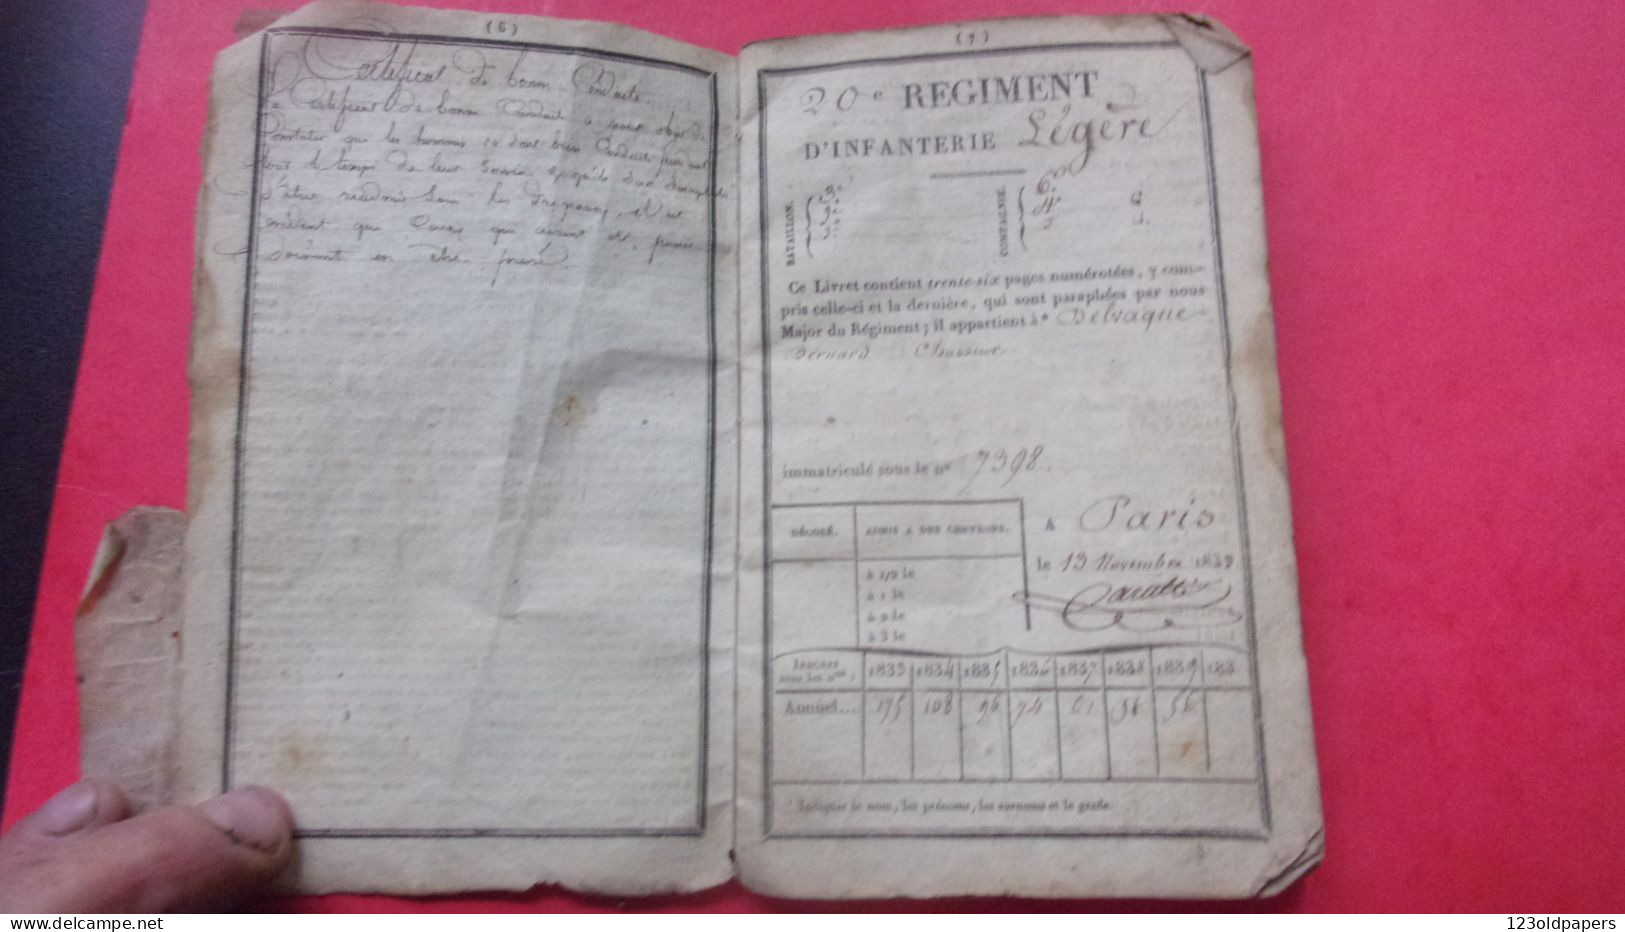 (6)
Certificat De bonne Conduite
Le Certificat De bonne Conduite a pour objet De
Constater que les hommes se sont bien Conduits pendant
tout le temps De leur Service et qu'ils sont
D'être readmis Sous les Drapeaux, il est
que Ceux qui auront été punis
en être privé.
(7)
20e REGIMENT
D'INFANTERIE Légère
BATAILLON.
COMPAGNIE.
Ce Livret contient trente-six pages numérotées, y com-
pris celle-ci et la dernière, qui sont paraphées par nous
Major du Régiment; il appartient à* Delvaque
Bernard Chasseur.
immatriculé sous le no 7398.
DÉCORÉ. ADMIS A DES CHEVRONS.
A Paris
le 13 Novembre 1833
à 1/2 le
à 1 le
à 2 le
à 3 le
Inscrit sous les nos : 1833 1834 1835 1836 1837 1838 1839 183
Annuel.... 175 108 96 74 61 56 56
* Indiquer le nom, les prénoms, les surnoms et le grade.
delcampe.net
123oldpapers